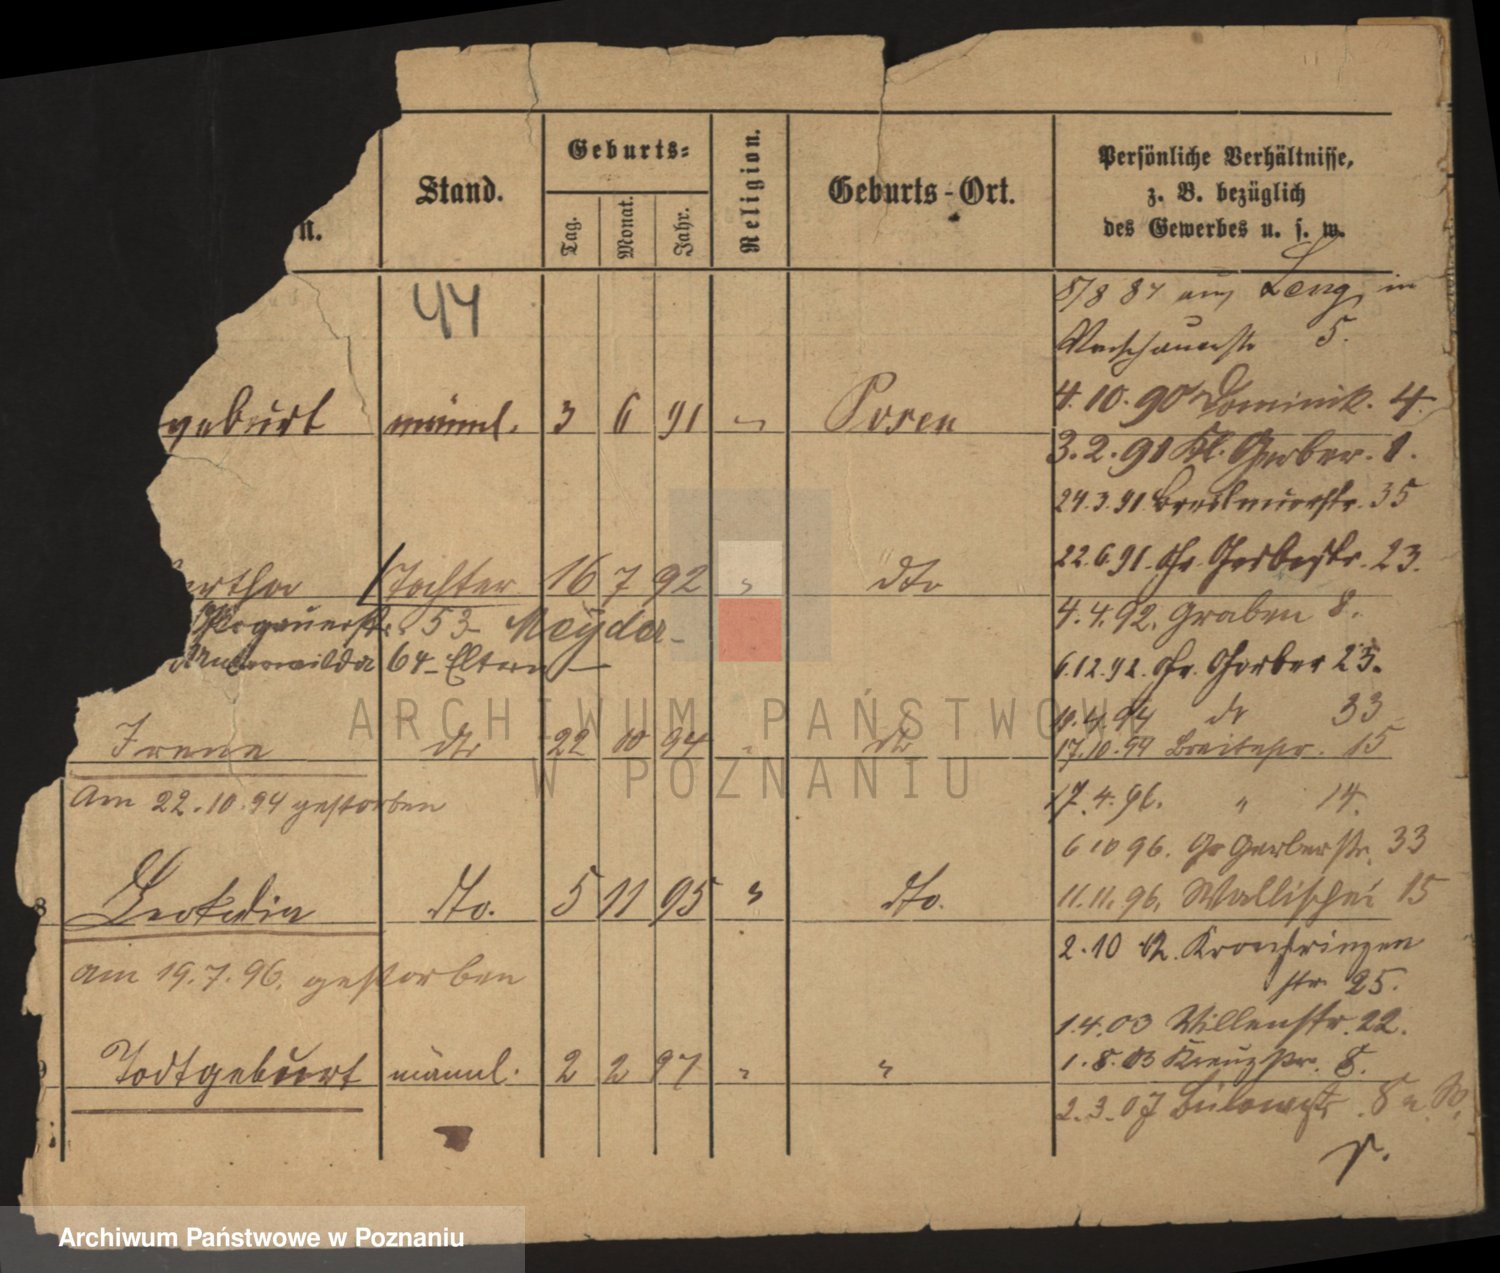 n.
Stand.
Geburts-
Tag.
Monat.
Jahr.
Religion.
Geburts-Ort.
Persönliche Verhältnisse,
z. B. bezüglich
des Gewerbes u. s. w.
44
8/8 87 aus in
5.
4.10.90 Dominik. 4.
geburt männl. 3 6 91 " Posen
3.2.91 Kl. Gerber. 1.
24.3.91. 35
22.6.91. Gr. Gerberstr. 23.
ertha Tochter 16 7 92 " dto
4.4.92. Graben 8.
53- Meyder-
Unterwilda 64- Eltern-
6.12.92. Gr. Gerber 25.
11.4.94 dt 33
Irene dto 22 10 94 " dto
17.10.94 Breitestr. 15
Am 22.10.94 gestorben
17.4.96. " 14.
6 10 96. Gr Gerberstr. 33
8 Leokadia dto. 5 11 95 " dto.
11.11.96. Wallischei 15
2.10 02. Kronprinzen
am 19.7.96. gestorben
str 25.
1.4.03 Villenstr. 22.
9 Todtgeburt männl. 2 2 97 " "
1.8.03 Kreuzstr. 8.
2.3.07 Bülowstr. 8 a. W.
ARCHIWUM PAŃSTWOWE
W POZNANIU
Archiwum Państwowe w Poznaniu